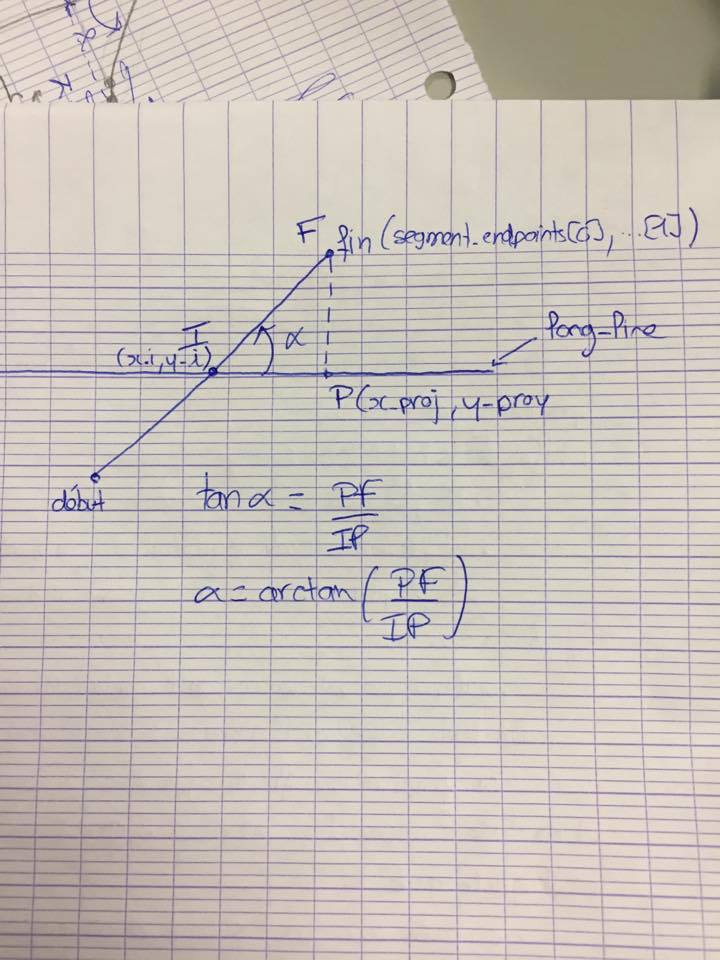 F fin (segment_endpoints[0], ...[1])
long-line
I
α
(x-i, y-i)
P(x-proj, y-proy
début
tan α = PF/IP
α = arctan(PF/IP)